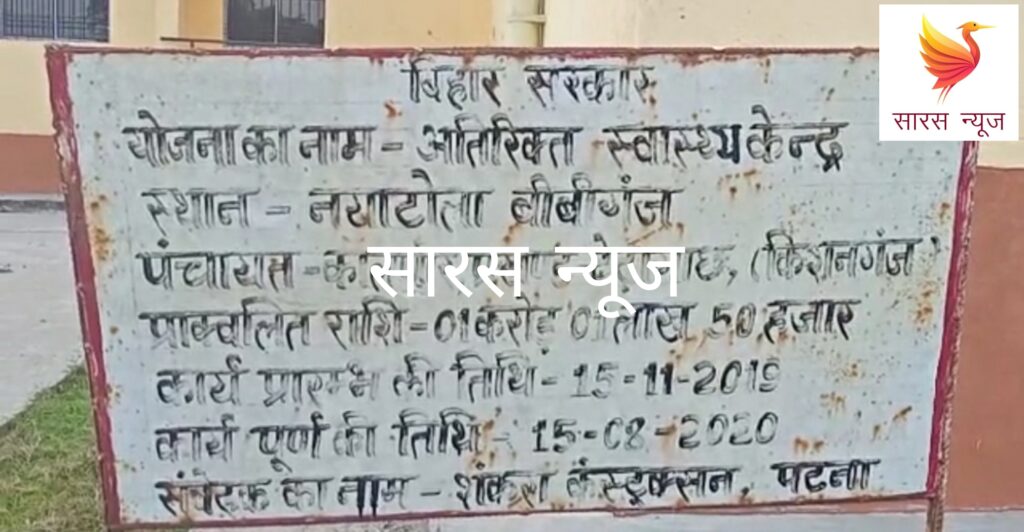 बिहार सरकार
योजना का नाम - अतिरिक्त स्वास्थ्य केन्द्र
स्थान - नयाटोला बीबीगंज
पंचायत - (किशनगंज)
प्राक्वलित राशि - 01 करोड़ 01 लाख, 50 हजार
कार्य प्रारम्भ की तिथि - 15-11-2019
कार्य पूर्ण की तिथि - 15-08-2020
संवेदक का नाम - शंकरा कंस्ट्रक्सन, पटना
सारस न्यूज
सारस न्यूज